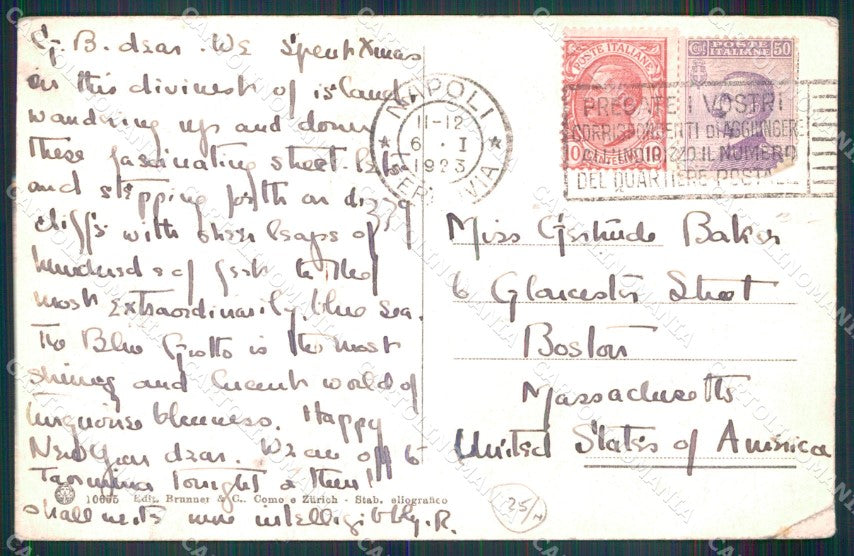 G. B. dear. We spent Xmas
in this divinest of islands
wandring up and down
these fascinating street
and stepping forth on dizzy
cliffs with sheer leaps of
hundreds of feet to the
most extraordinarily blue sea.
The Blue Grotto is the most
shining and lucent world of
turquoise blueness. Happy
New Year dear. We are off to
Taormina tonight & then I
shall write more intelligibly. R.
10665 Ediz. Brunner & C., Como e Zürich - Stab. eliografico
NAPOLI
11-12
6 . I
1923
FERROVIA
POSTE ITALIANE
10
POSTE
ITALIANE
50
PREGATE I VOSTRI
CORRISPONDENTI DI AGGIUNGERE
ALL'INDIRIZZO IL NUMERO
DEL QUARTIERE POSTALE
Miss Gertrude Baker
6 Gloucester Street
Boston
Massachusetts
United States of America
25/
CARTOLINOMANIA